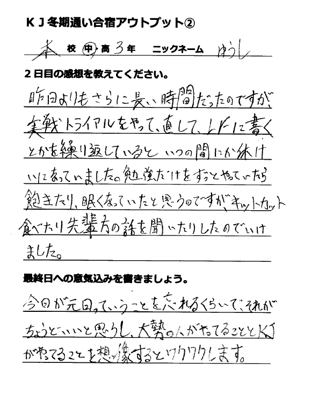 KJ冬期通い合宿アウトプット②
本 校 中・高 3年 ニックネーム ゆうし
2日目の感想を教えてください。
昨日よりもさらに長い時間だったのですが、
実戦トライアルをやって、直して、LFに書く
とかを繰り返していると いつの間にか休け
いになっていました。勉強だけをずっとやっていたら
飽きたり、眠くなっていたと思うのですが、キットカット
食べたり先輩方の話を聞いたりしたのでいけ
ました。
最終日への意気込みを書きましょう。
今日が元日っていうことを忘れるくらいで、それが
ちょうどいいと思うし、大勢の人がやってることとKJ
がやってることを想像するとワクワクします。